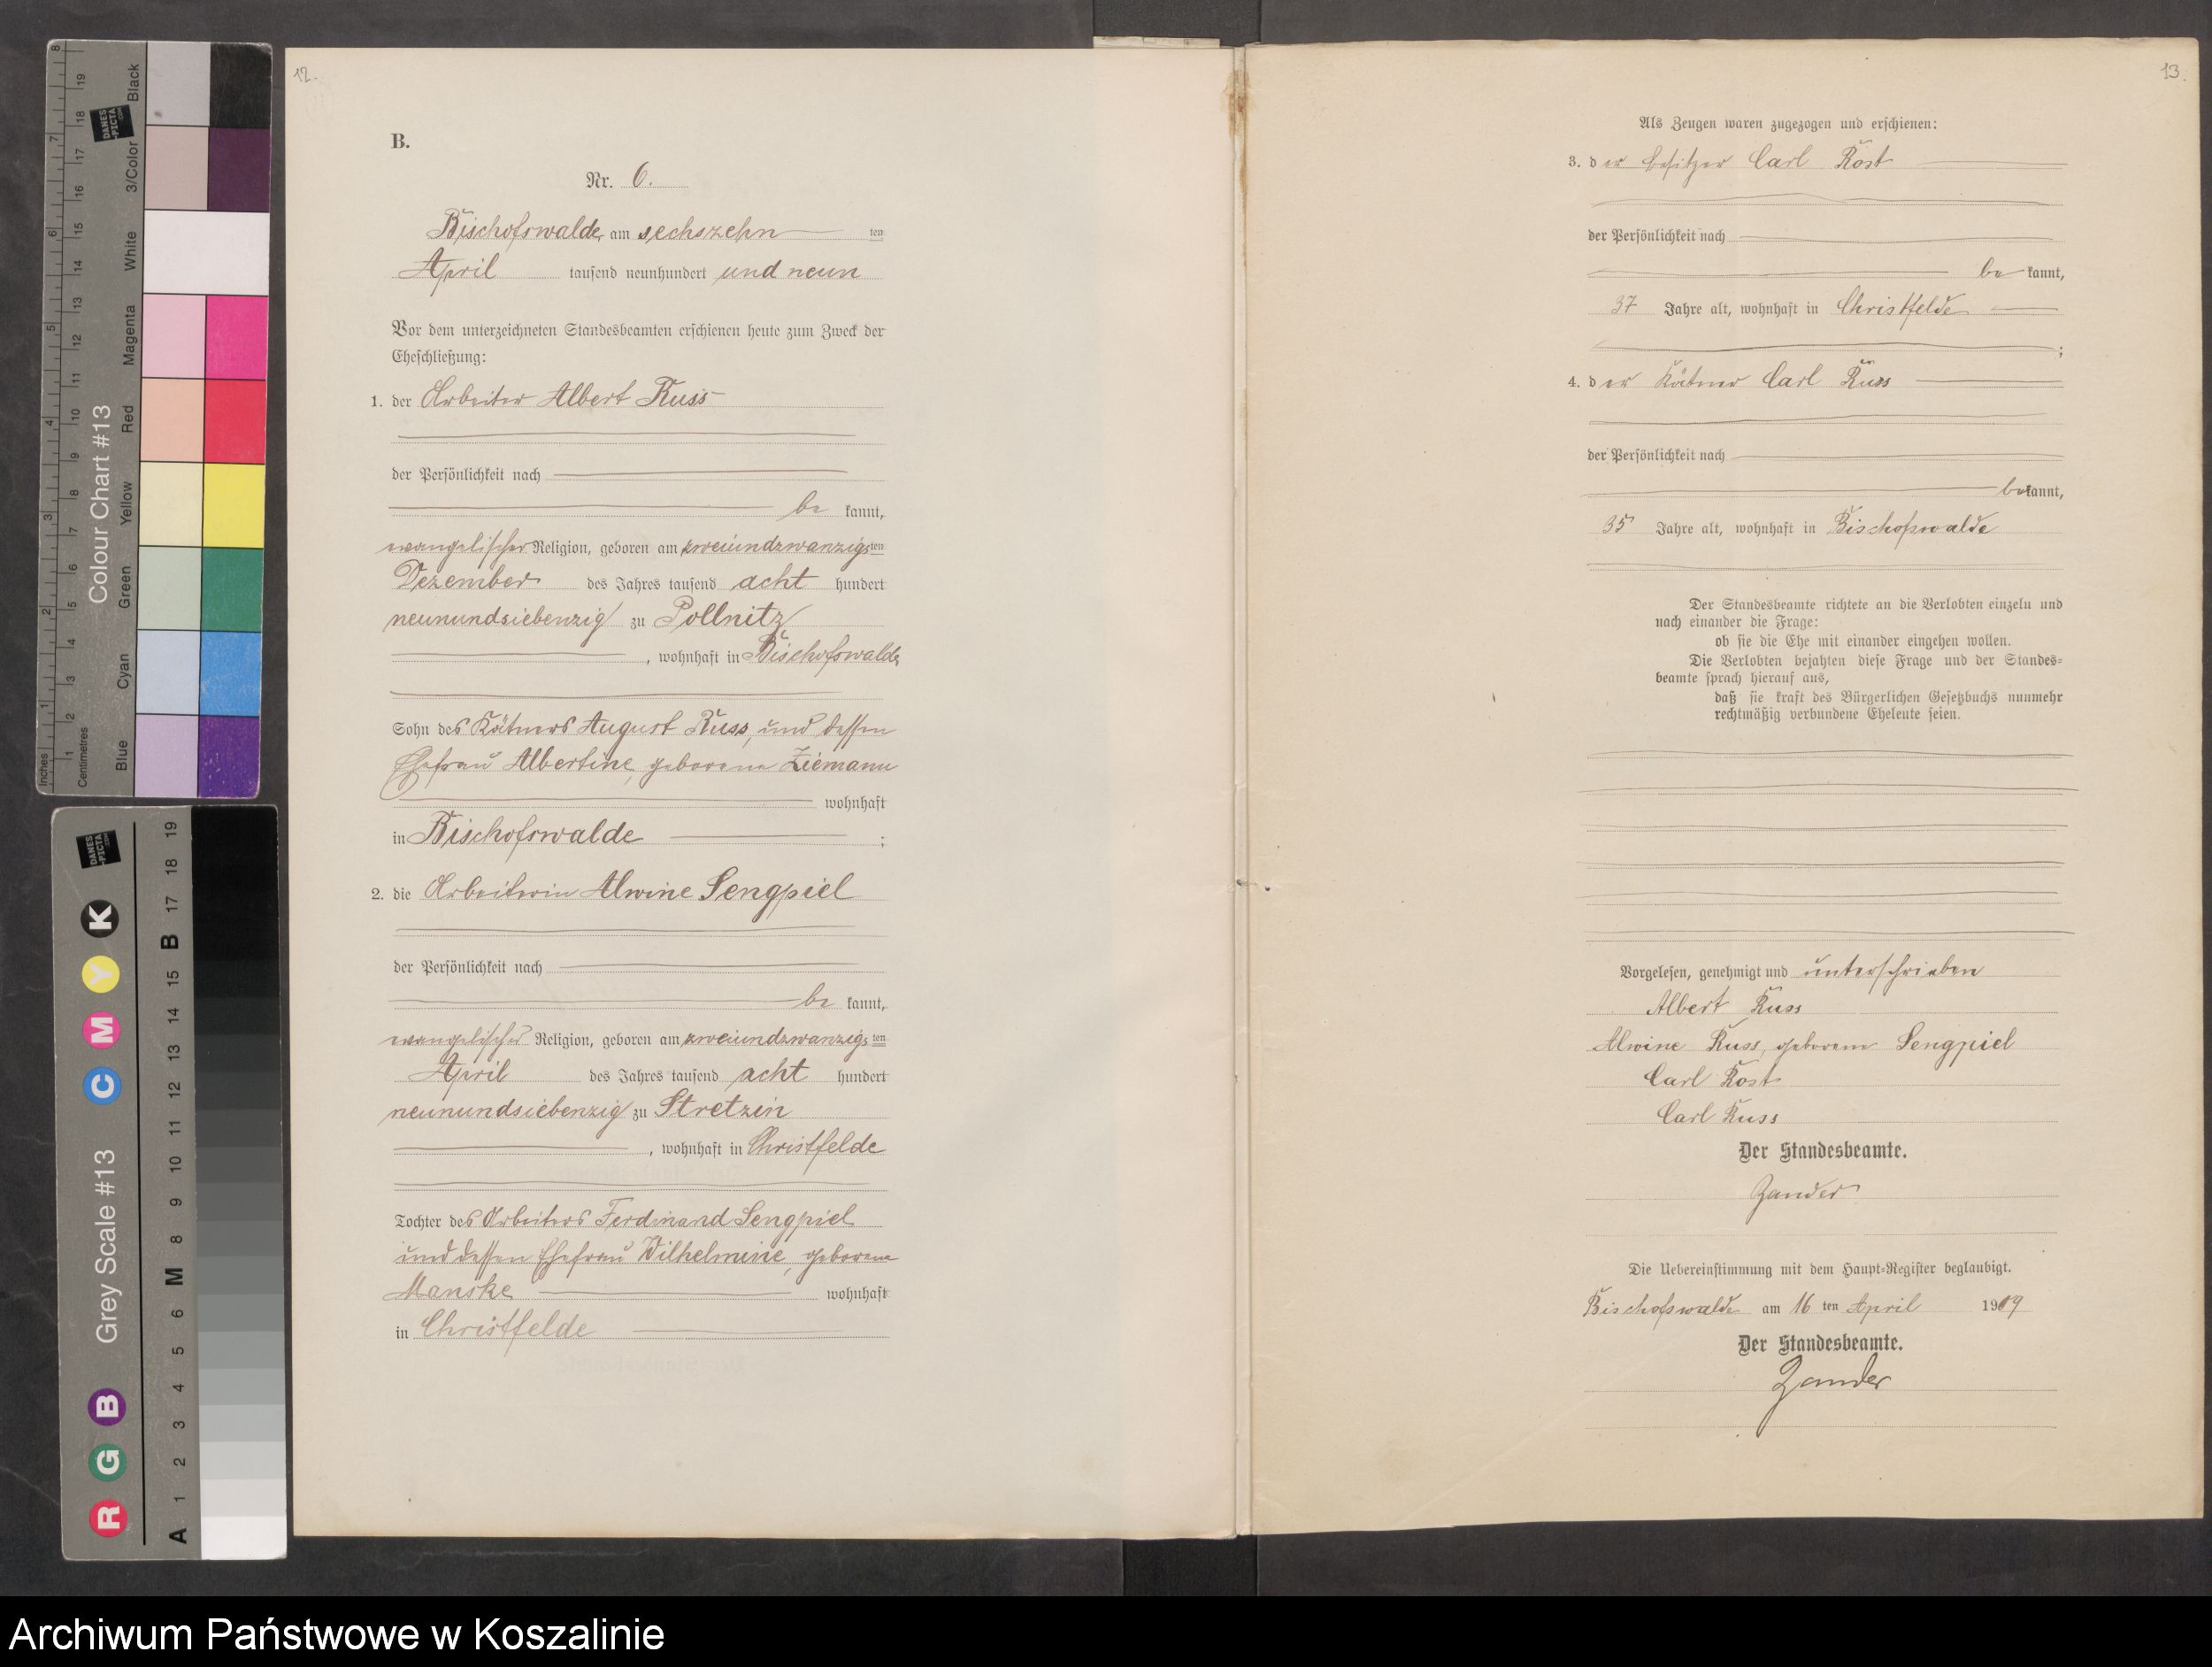 12.
B.
Nr. 6.
Bischofswalde, am sechszehn ten
April tausend neunhundert und neun
Vor dem unterzeichneten Standesbeamten erschienen heute zum Zweck der
Eheschließung:
1. der Arbeiter Albert Russ
der Persönlichkeit nach
be kannt,
evangelischer Religion, geboren am zweiundzwanzigsten
Dezember des Jahres tausend acht hundert
neunundsiebenzig zu Pollnitz
, wohnhaft in Bischofswalde
Sohn des Kätners August Russ, und dessen
Ehefrau Albertine, geborene Ziemann
wohnhaft
in Bischofswalde ;
2. die Arbeiterin Alwine Sengpiel
der Persönlichkeit nach
be kannt,
evangelischer Religion, geboren am zweiundzwanzigsten
April des Jahres tausend acht hundert
neunundsiebenzig zu Stretzin
, wohnhaft in Christfelde
Tochter des Arbeiters Ferdinand Sengpiel
und dessen Ehefrau Wilhelmine, geborene
Manske wohnhaft
in Christfelde
13.
Als Zeugen waren zugezogen und erschienen:
3. der Besitzer Carl Rost
der Persönlichkeit nach
be kannt,
37 Jahre alt, wohnhaft in Christfelde
;
4. der Kätner Carl Russ
der Persönlichkeit nach
bekannt,
35 Jahre alt, wohnhaft in Bischofswalde
Der Standesbeamte richtete an die Verlobten einzeln und
nach einander die Frage:
ob sie die Ehe mit einander eingehen wollen.
Die Verlobten bejahten diese Frage und der Standes=
beamte sprach hierauf aus,
daß sie kraft des Bürgerlichen Gesetzbuchs nunmehr
rechtmäßig verbundene Eheleute seien.
Vorgelesen, genehmigt und unterschrieben
Albert Russ
Alwine Russ, geborene Sengpiel
Carl Rost
Carl Russ
Der Standesbeamte.
Zander
Die Uebereinstimmung mit dem Haupt=Register beglaubigt.
Bischofswalde am 16 ten April 1909
Der Standesbeamte.
Zander
Colour Chart #13
Inches
Centimetres
Blue
Cyan
Green
Yellow
Red
Magenta
White
3/Color
Black
DANES
-PICTA
.COM
Grey Scale #13
R G B C M Y K
A 1 2 3 4 5 6 M 8 9 10 11 12 13 14 15 B 17 18 19
Archiwum Państwowe w Koszalinie